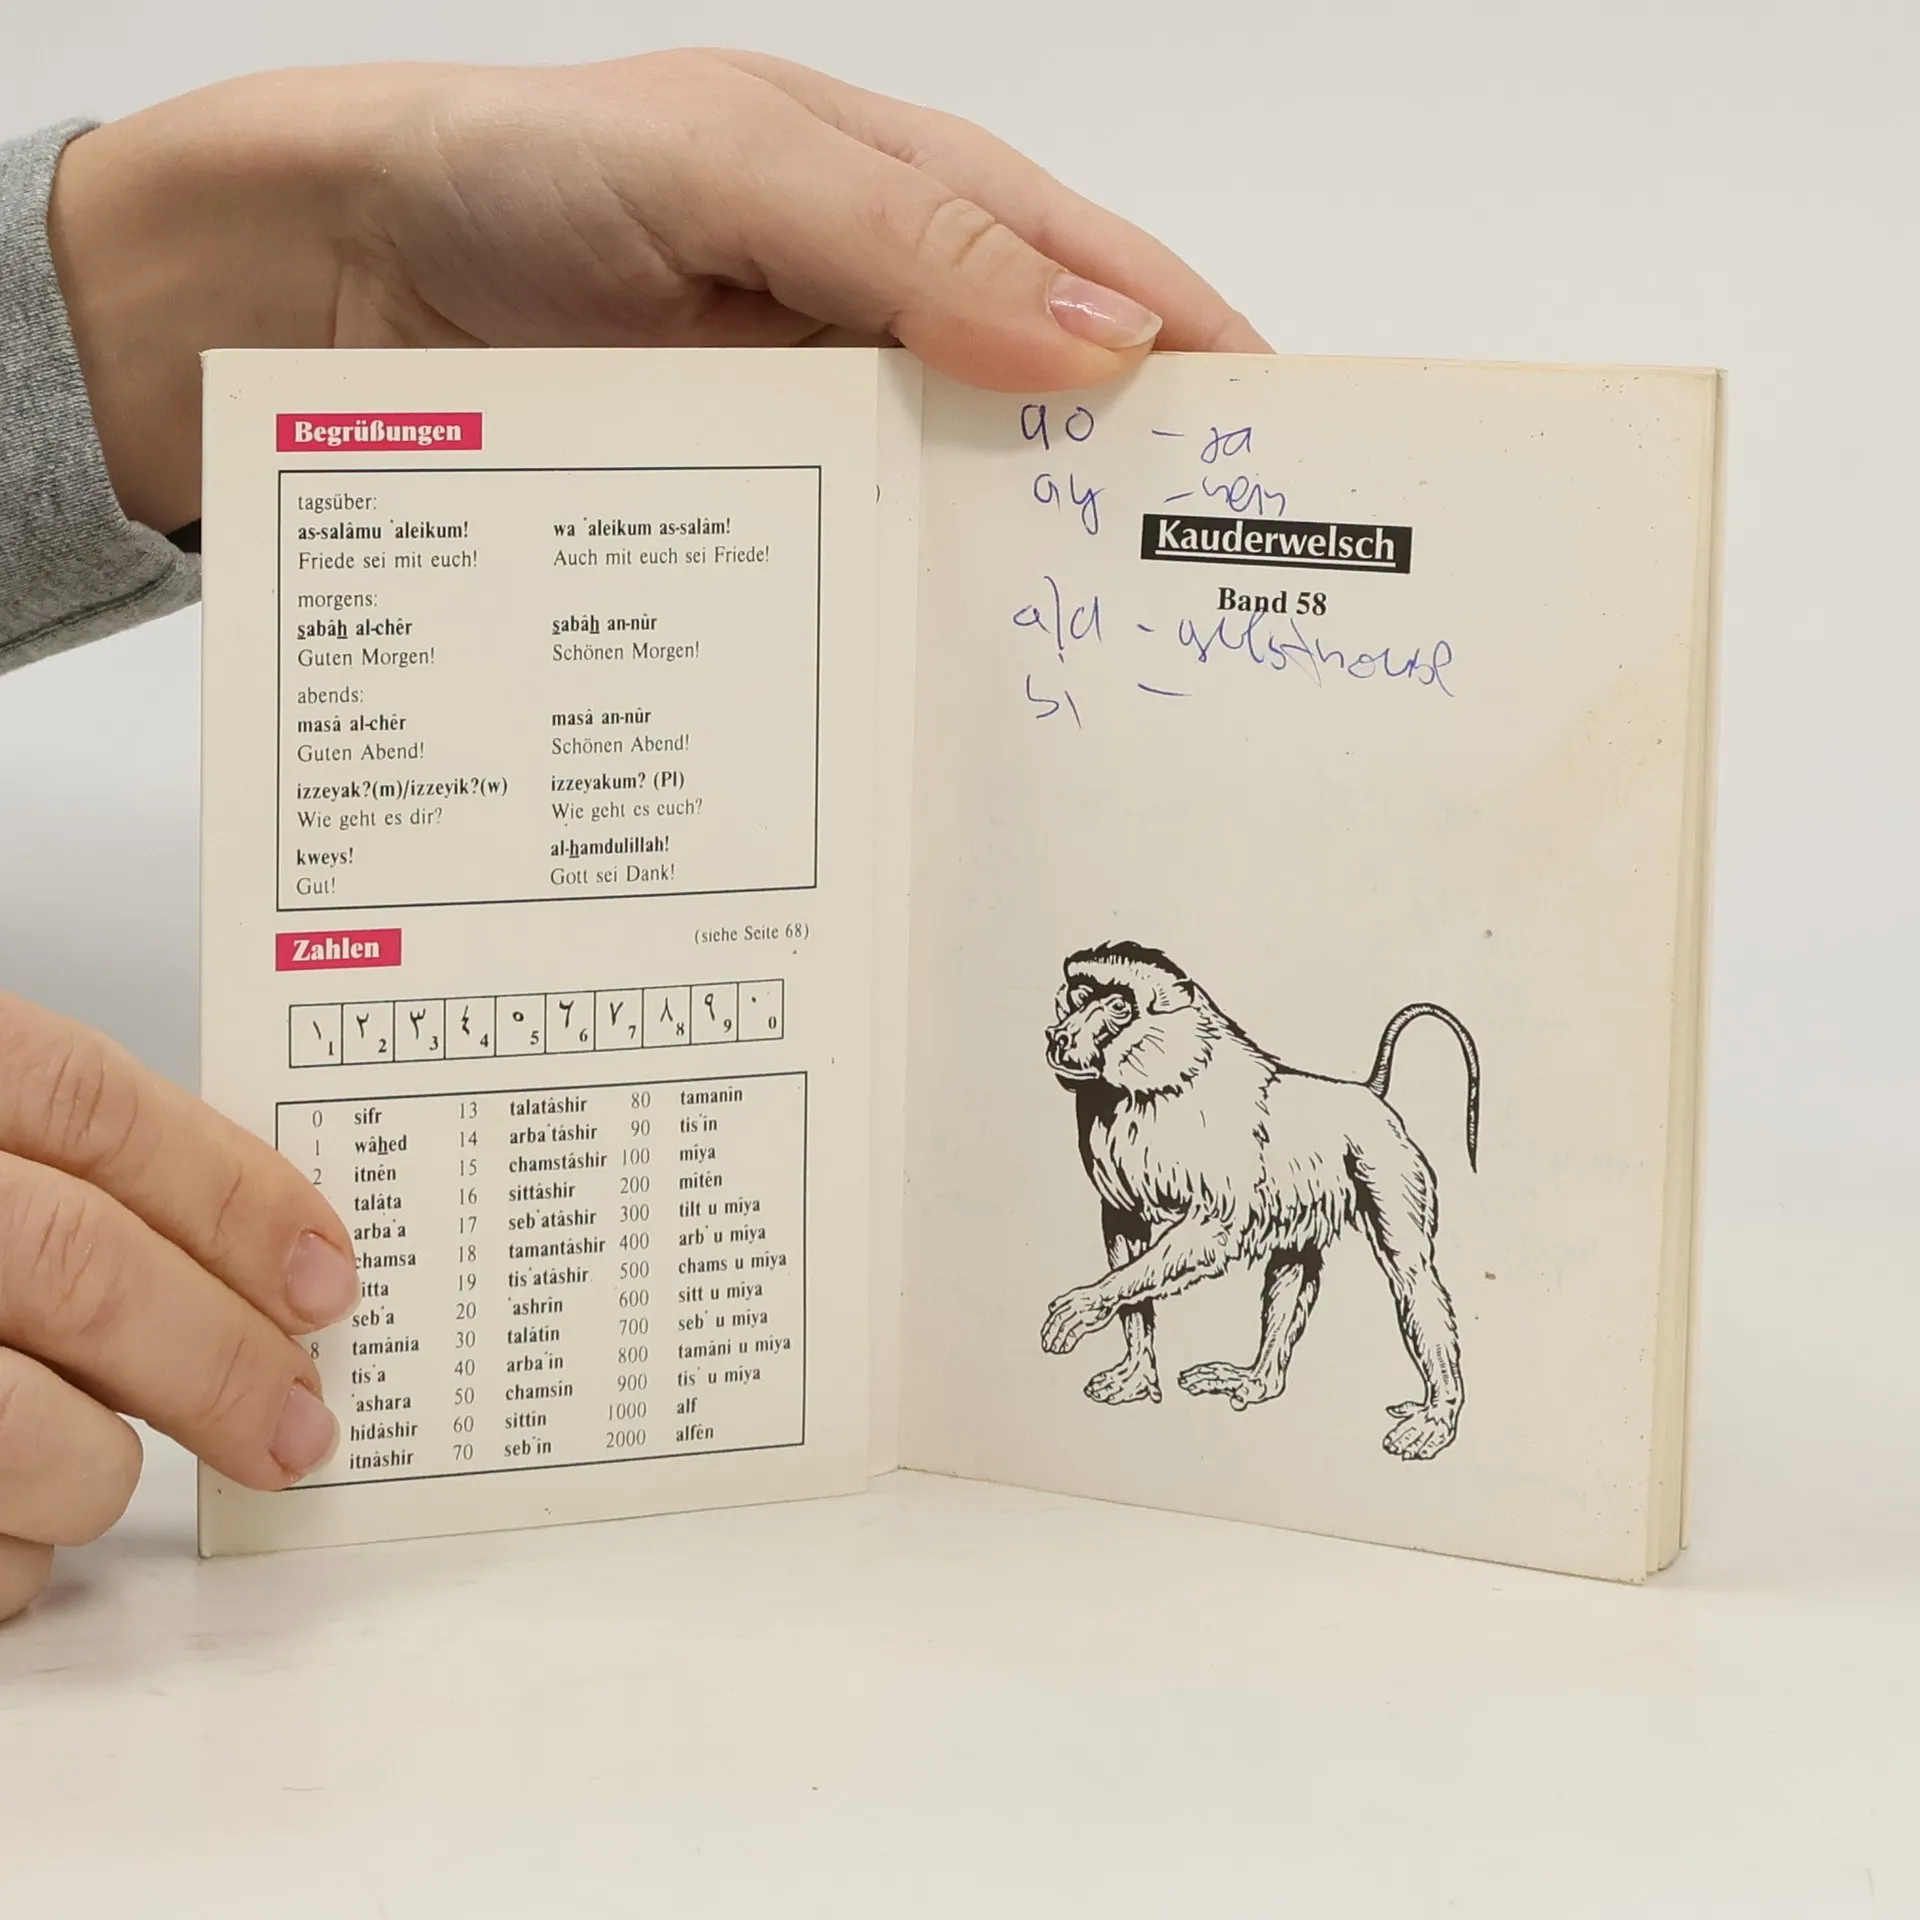 Begrüßungen
tagsüber:
as-salâmu ʿaleikum! wa ʿaleikum as-salâm!
Friede sei mit euch! Auch mit euch sei Friede!
morgens:
sabâh al-chêr sabâh an-nûr
Guten Morgen! Schönen Morgen!
abends:
masâ al-chêr masâ an-nûr
Guten Abend! Schönen Abend!
izzeyak?(m)/izzeyik?(w) izzeyakum? (Pl)
Wie geht es dir? Wie geht es euch?
kweys! al-hamdulillah!
Gut! Gott sei Dank!
Zahlen (siehe Seite 68)
١ ٢ ٣ ٤ ٥ ٦ ٧ ٨ ٩ ٠
1 2 3 4 5 6 7 8 9 0
0 sifr 13 talatâshir 80 tamanîn
1 wâhed 14 arbaʿtâshir 90 tisʿîn
2 itnên 15 chamstâshir 100 mîya
talâta 16 sittâshir 200 mîtên
arbaʿa 17 sebʿatâshir 300 tilt u mîya
chamsa 18 tamantâshir 400 arbʿ u mîya
itta 19 tisʿatâshir 500 chams u mîya
sebʿa 20 ʿashrîn 600 sitt u mîya
8 tamânia 30 talâtîn 700 sebʿ u mîya
tisʿa 40 arbaʿîn 800 tamâni u mîya
ʿashara 50 chamsîn 900 tisʿ u mîya
hidâshir 60 sittîn 1000 alf
itnâshir 70 sebʿîn 2000 alfên
ao – ja
ay – nein
Kauderwelsch
Band 58
- guesthouse